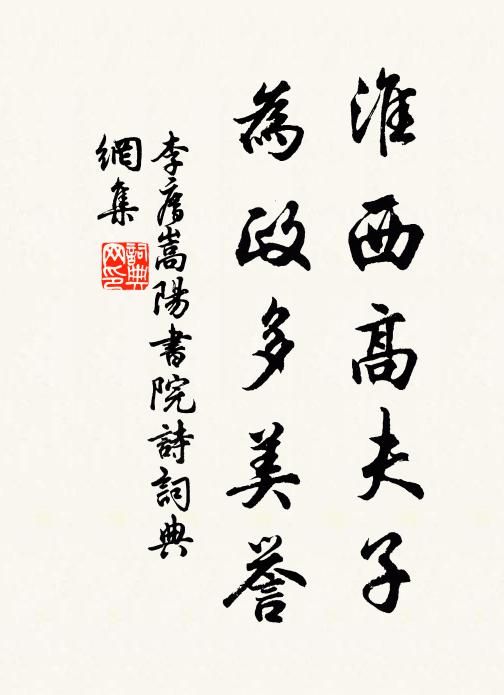 淮西高夫子
為政多美誉
李廌嵩陽書院詩詞典
網集
詞典
网印